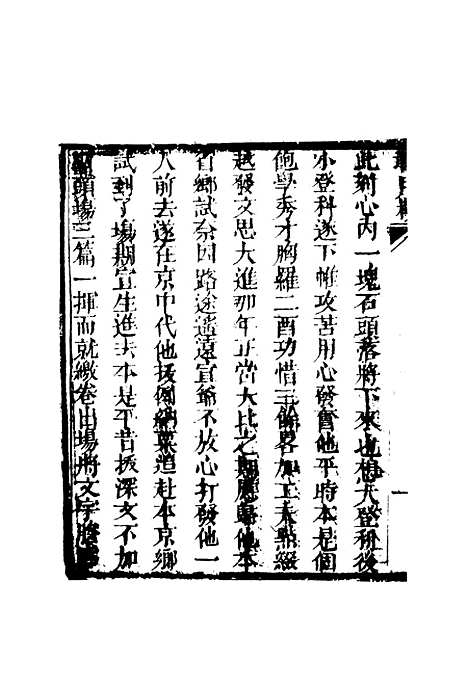 此刻心內一塊石頭落將下來也想大登科後
小登科遂下帷攻苦用心發奮他平時本是個
飽學秀才胸羅二酉功惜三餘畧加工夫點綴
越發文思大進那年正當大比之期應歸他本
省鄉試奈因路途遙遠宜爺不放心打發他一
人前去遂在京中代他援例納粟進赴本京鄉
試到了場期宜生進去本是平昔拔深文不加
頭場三篇一揮而就繳卷出場將文字謄